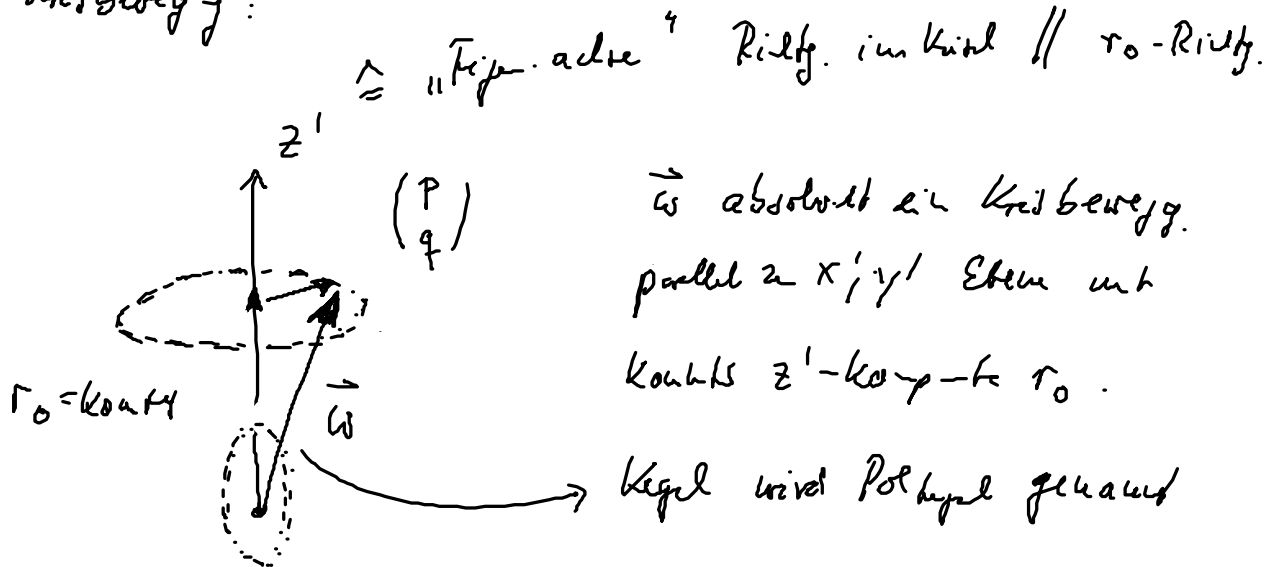 ≙ „Figuren.achse“ Richtg. im Kreisel // r₀-Richtg.
z'
(p q)
ω⃗ absolviert ein Kreisbewegg.
parallel zu x', y' Ebene mit
r₀=konst
ω⃗
konstt z'-Komp-te r₀.
Kegel wird Polkegel genannt